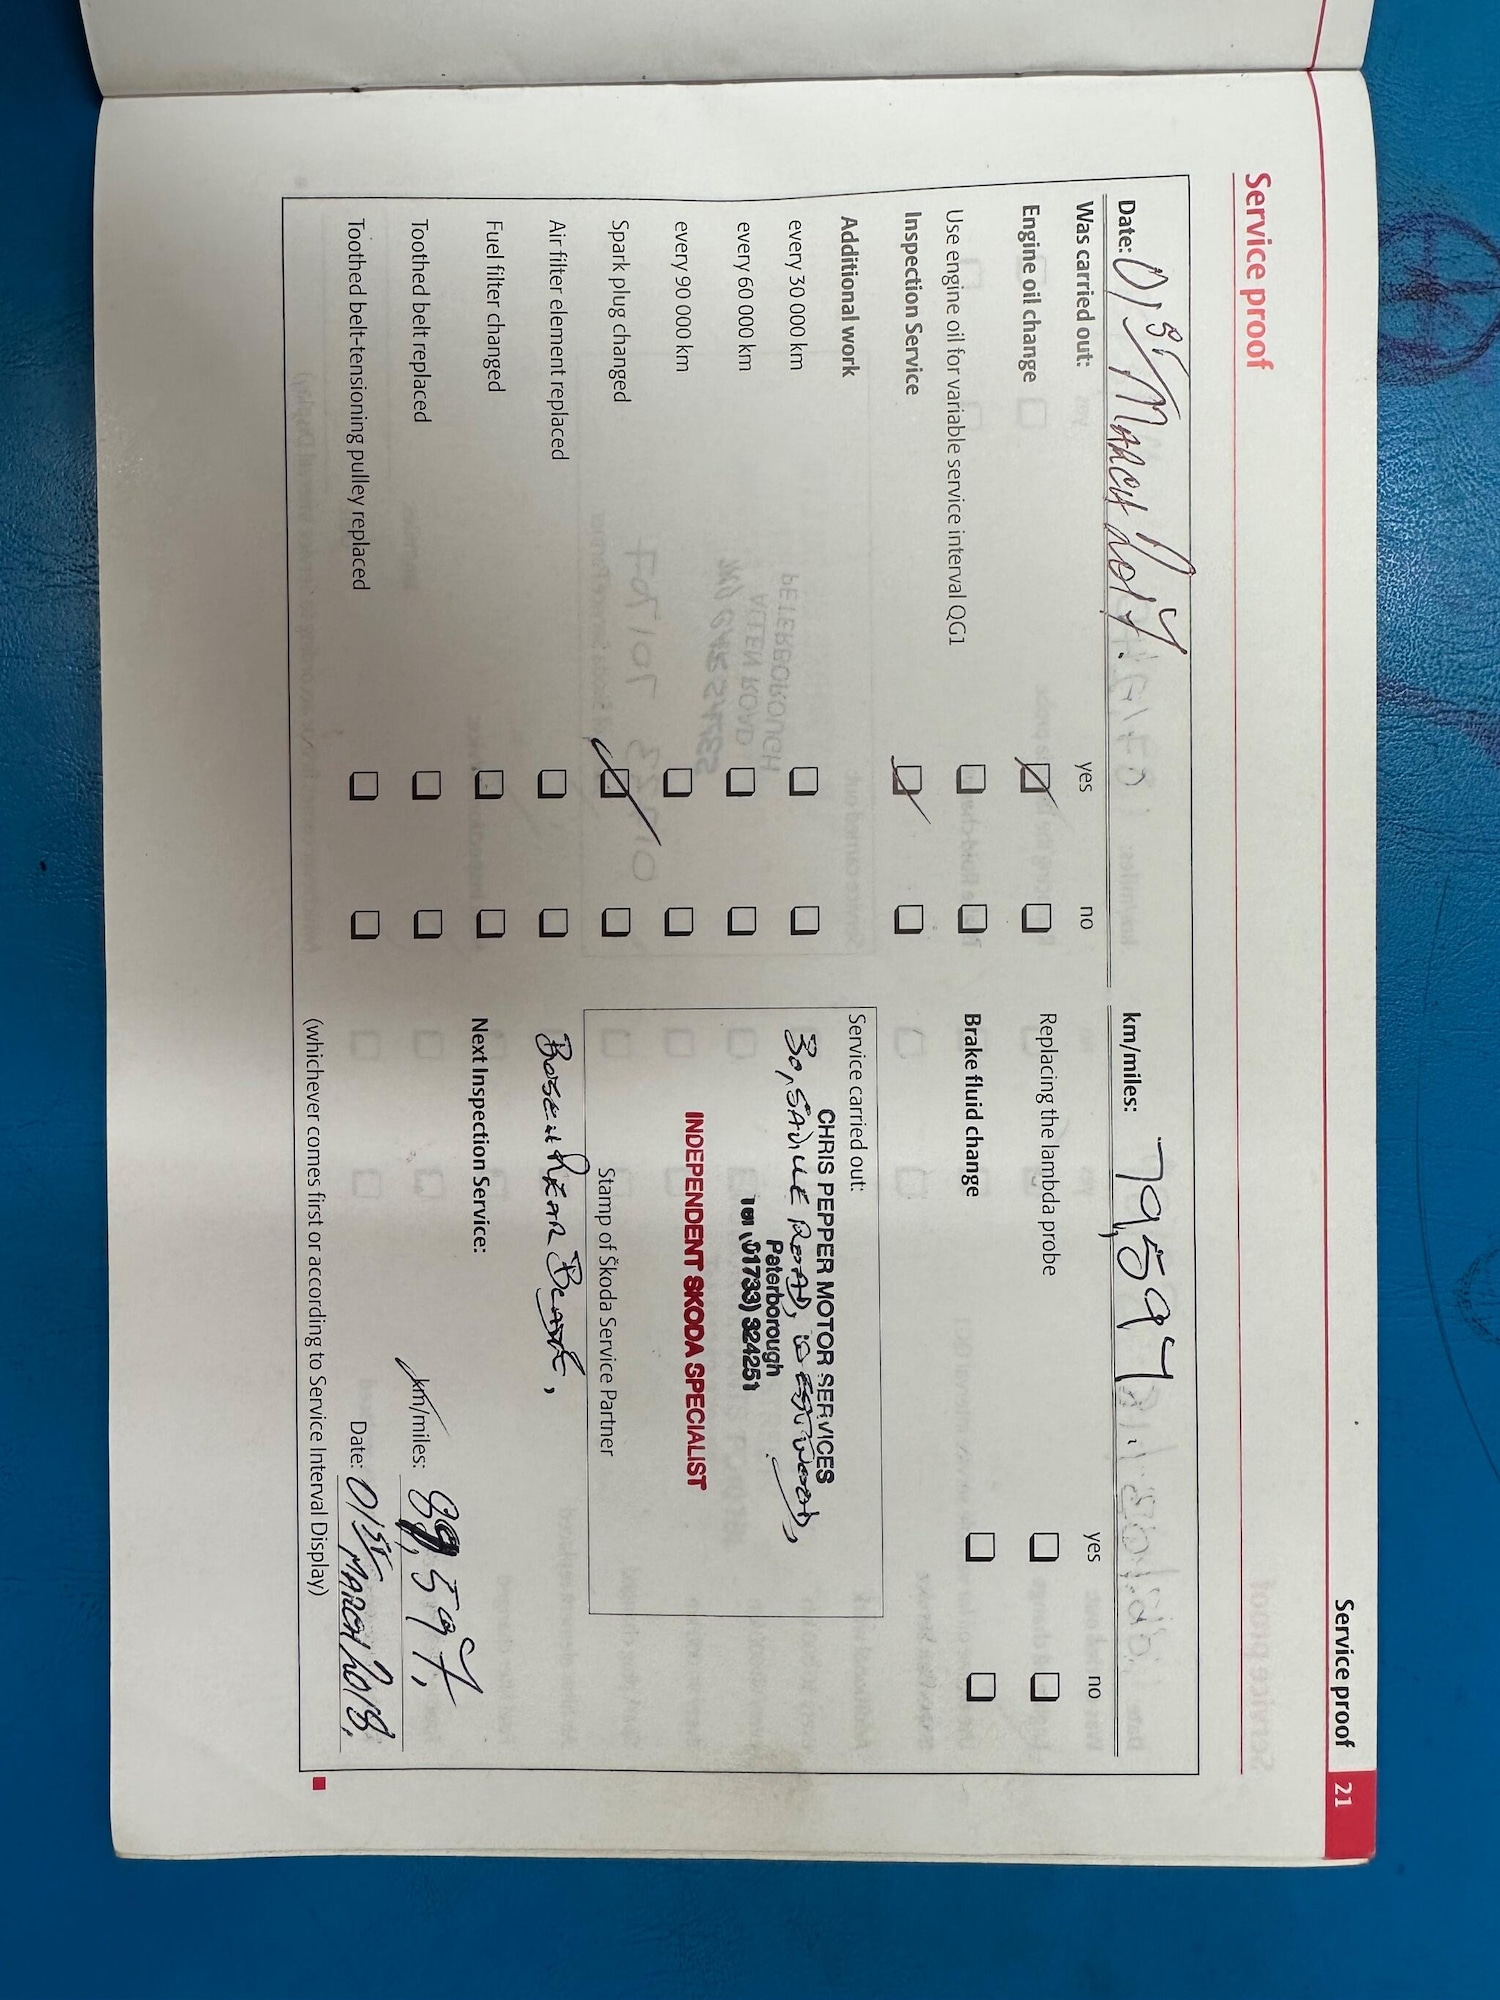 Service proof 21
Service proof
Date: 01ST March 2017. km/miles: 79,597.
Was carried out: yes no yes no
Engine oil change Replacing the lambda probe
Use engine oil for variable service interval QG1 Brake fluid change
Inspection Service
Additional work Service carried out:
every 30 000 km
every 60 000 km
every 90 000 km
CHRIS PEPPER MOTOR SERVICES
30, SAVILLE ROAD, WESTWOOD,
Peterborough
Tel (01733) 324251
INDEPENDENT SKODA SPECIALIST
Spark plug changed Stamp of Škoda Service Partner
Air filter element replaced
Fuel filter changed Next Inspection Service:
Toothed belt replaced km/miles: 89,597.
Toothed belt-tensioning pulley replaced Date: 01ST MARCH 2018.
(whichever comes first or according to Service Interval Display)